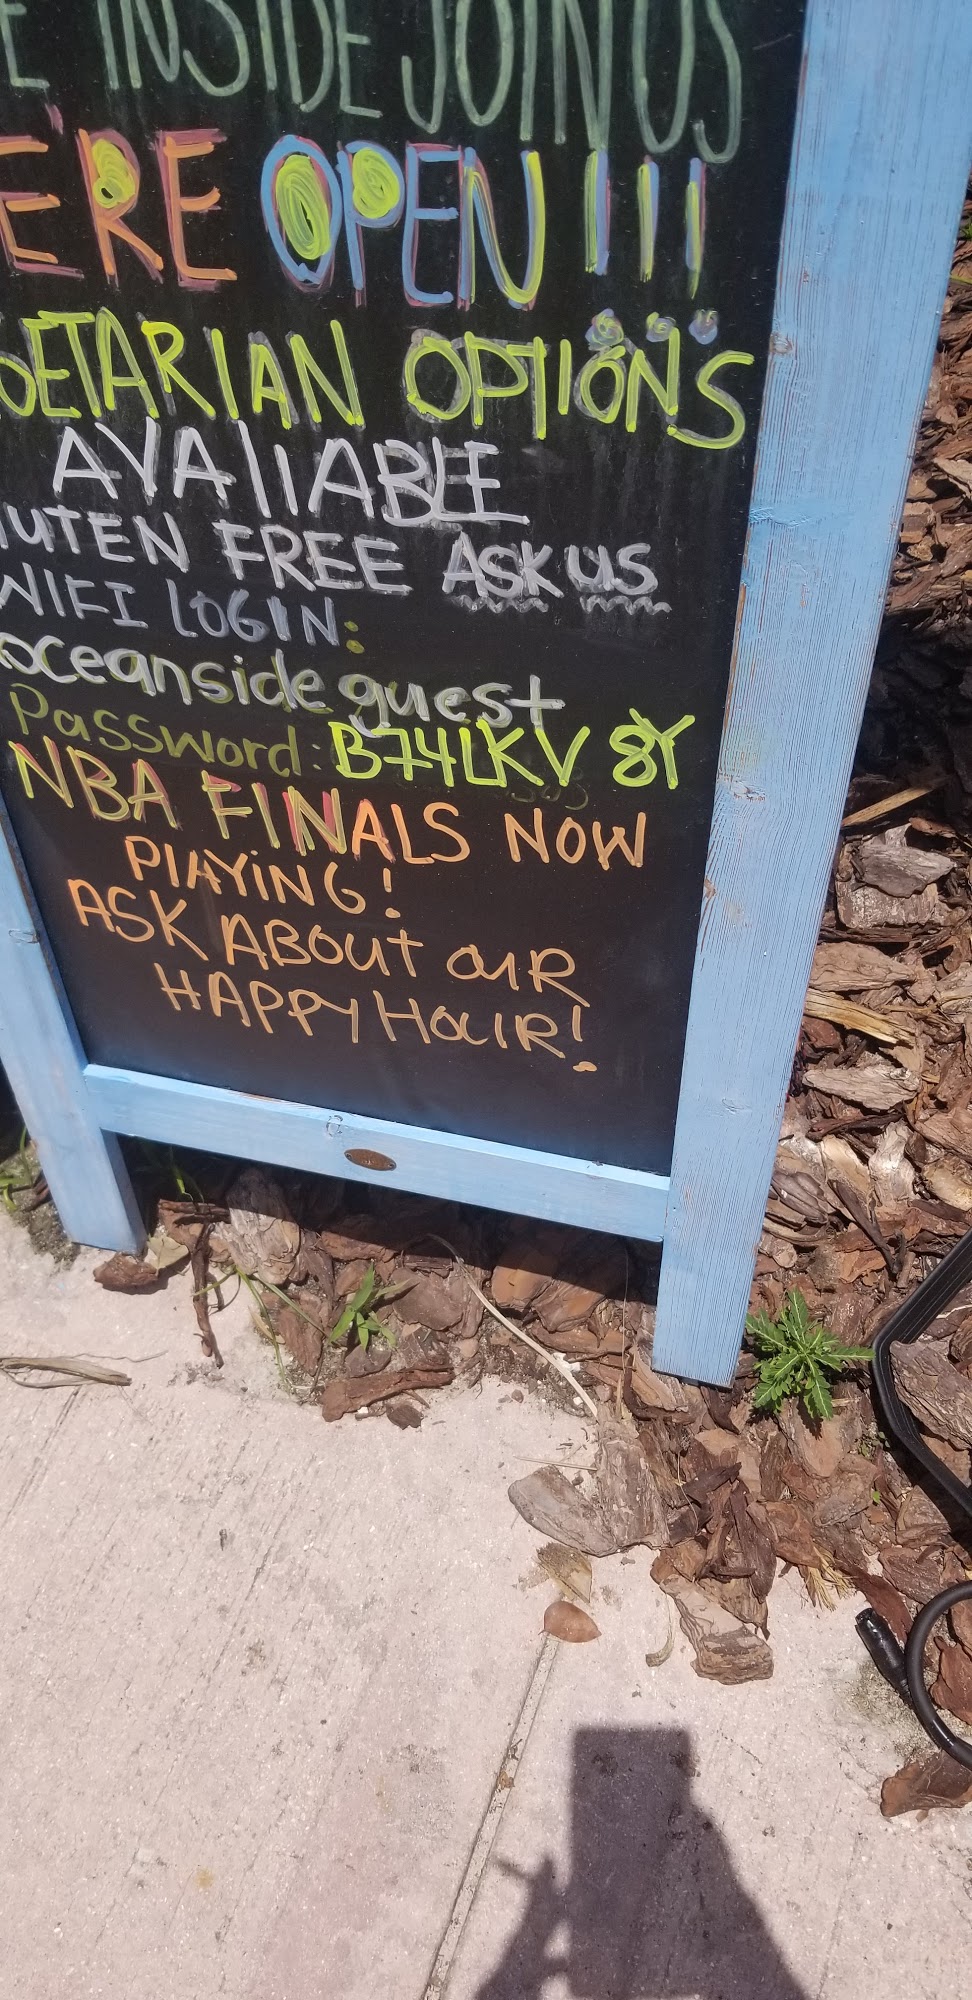 INSIDE JOIN US
E'RE OPEN!!!
GETARIAN OPTIONS
AVAlIABLE
UTEN FREE ASK US
WIFI LOGIN:
oceanside guest
Password: B74LKV8Y
NBA FINALS NOW
PlAYiNG!
ASK ABOUt OUR
HAPPY HOUR!